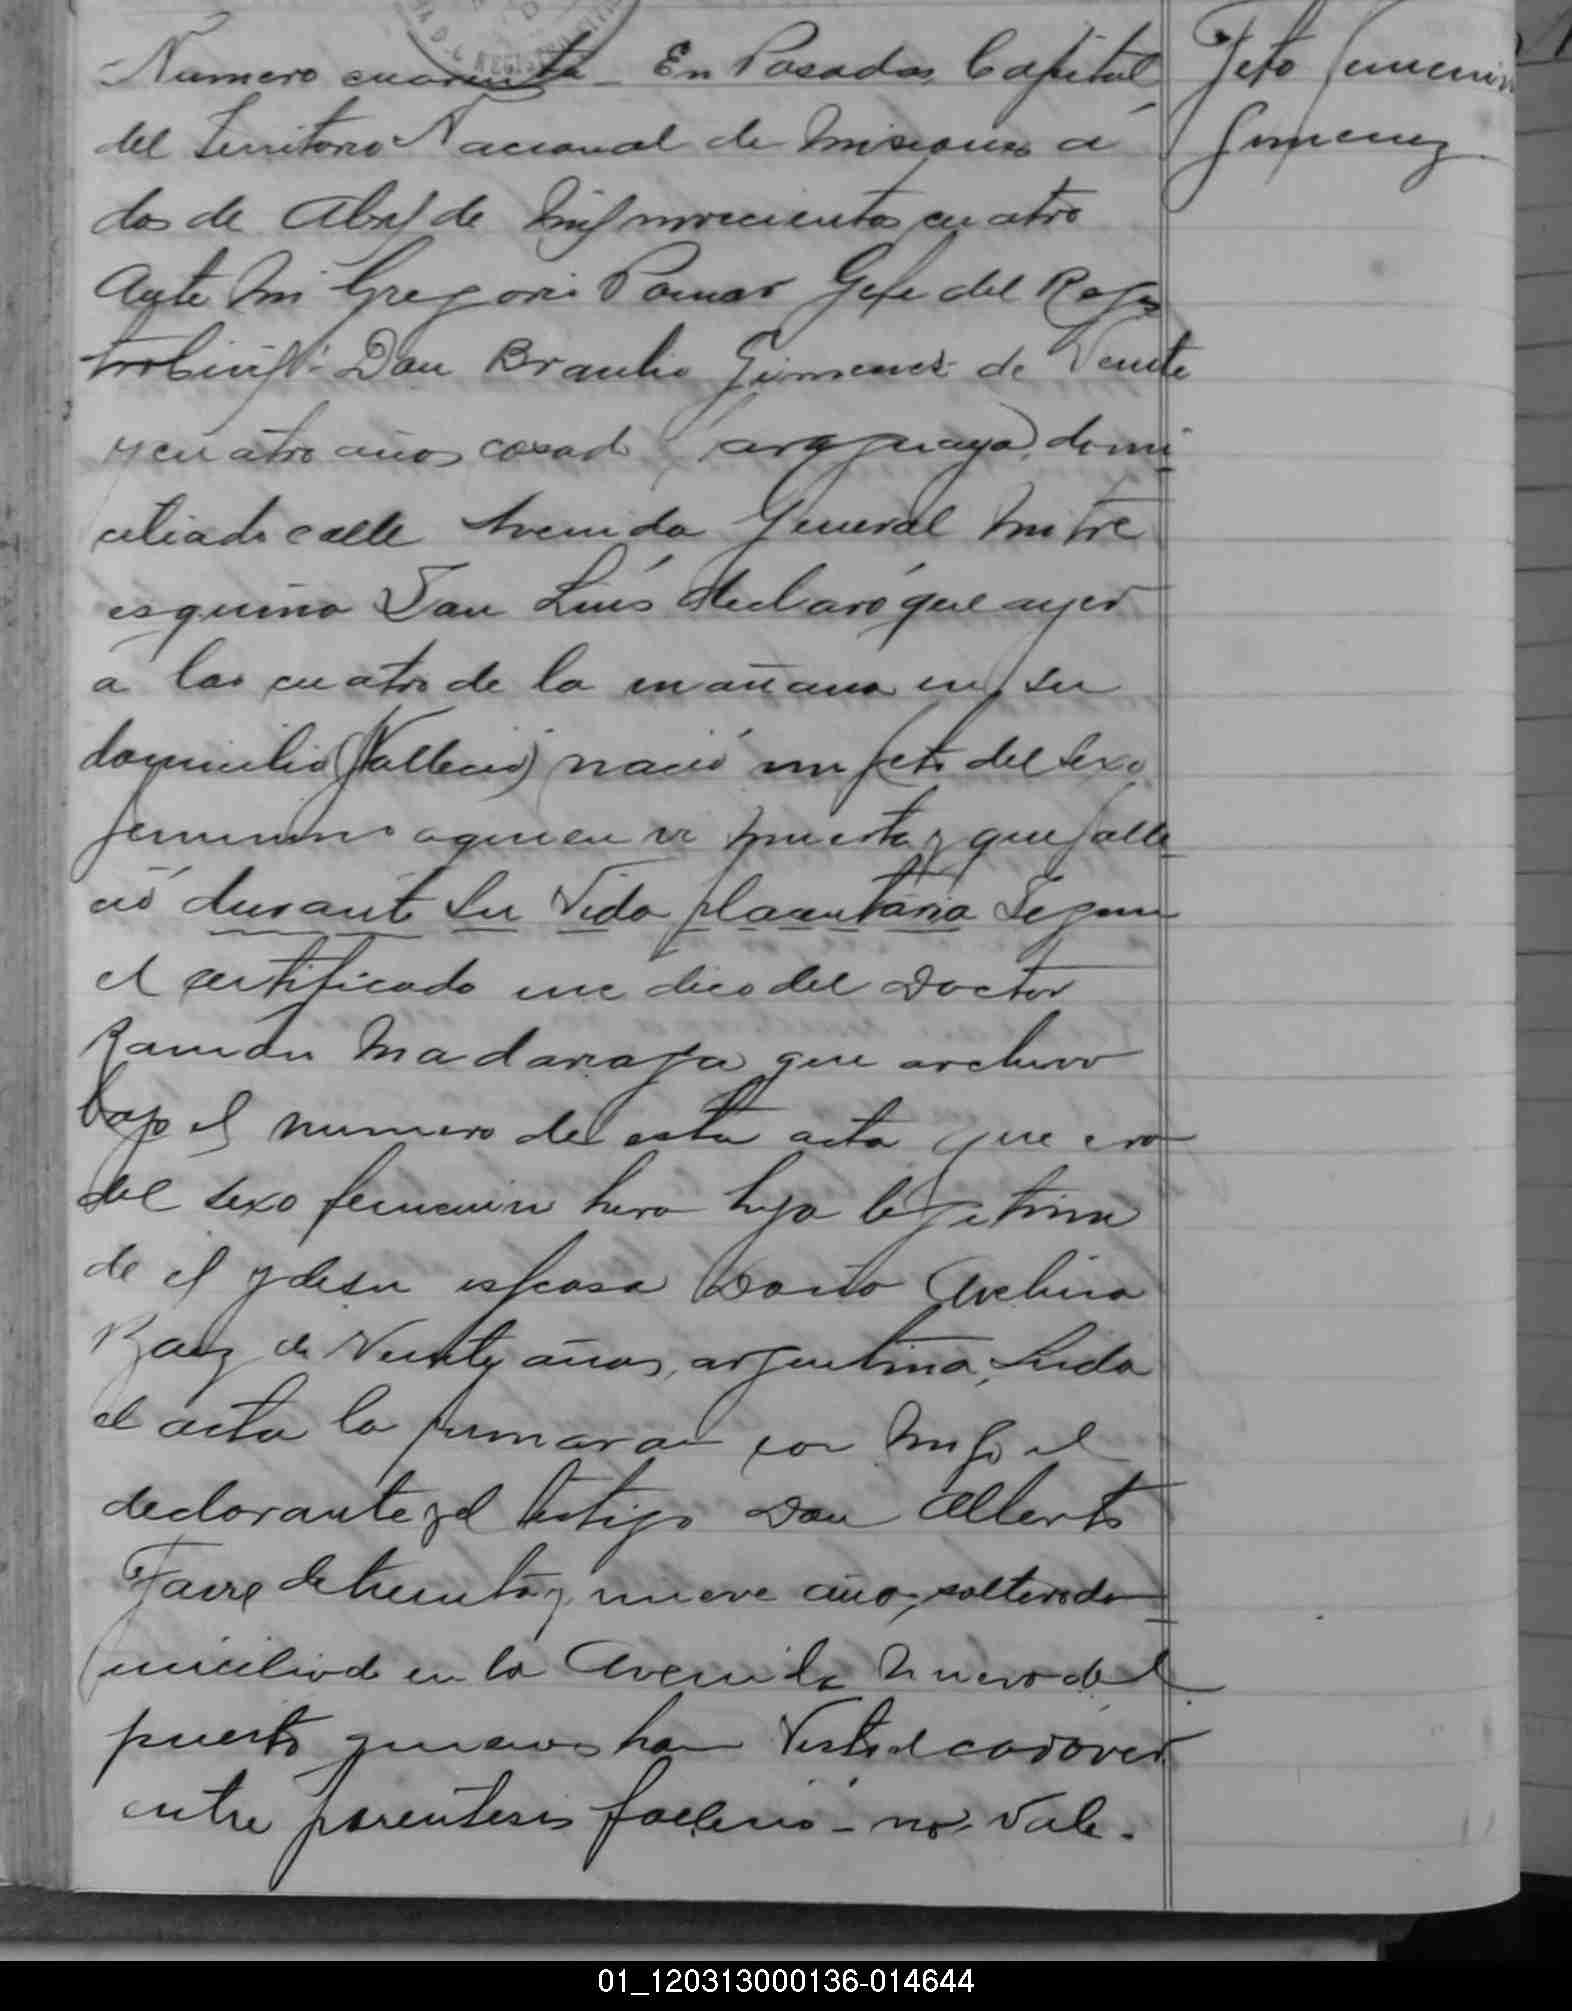 Numero cuarenta - En Posadas, Capital
del Territorio Nacional de Misiones á
dos de Abril de Mil novecientos cuatro
Ante Mi Gregorio Pomar Gefe del Regis
tro Civil: Don Braulio Gimenez de Veinte
y cuatro años casado, paraguayo, domi
ciliado calle Avenida General Mitre
esquina San Luís declaró que ayer
a las cuatro de la mañana en su
domicilio (falleció) nació un feto del sexo
femenino a quien vi muerta y que falle
ció durante su Vida placentaria Segun
el certificado medico del Doctor
Ramón Madariaga que archivo
bajo el numero de esta acta que era
del sexo femenino hera hija legitima
de el y de su esposa Doña Avelina
Baez de Veinte años, argentina, Leida
el acta la firmaran con migo el
declarante y el testigo Don Alberto
Favre de treinta y nueve años, soltero do
miciliado en la Avenida Nueva del
puerto quienes han Visto el cadáver
entre parentesis falleció - no Vale.
Feto femenino
Gimenez
REGISTRO
01_120313000136-014644